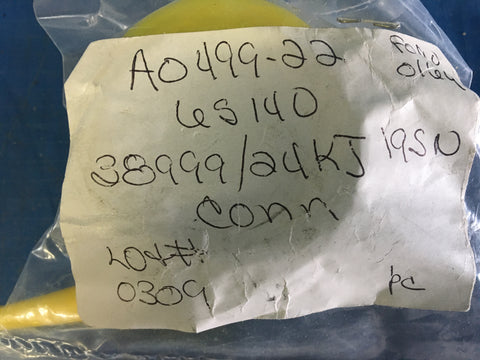 A0499-22
65140
38999/24KJ 19SN
Conn
Lot#
0309
pc